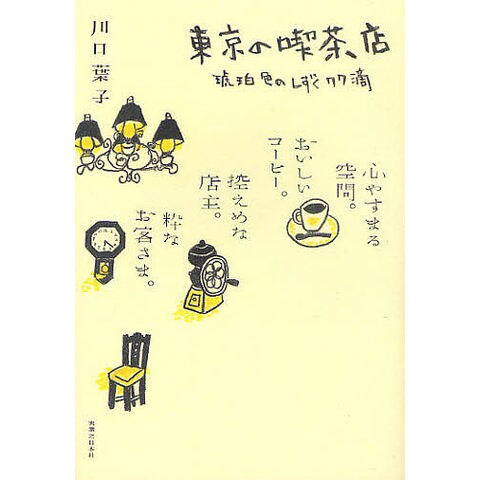 東京の喫茶店
琥珀色のしずく77滴
川口葉子
心やすまる
空間。
おいしい
コーヒー。
控えめな
店主。
粋な
お客さま。
実業之日本社